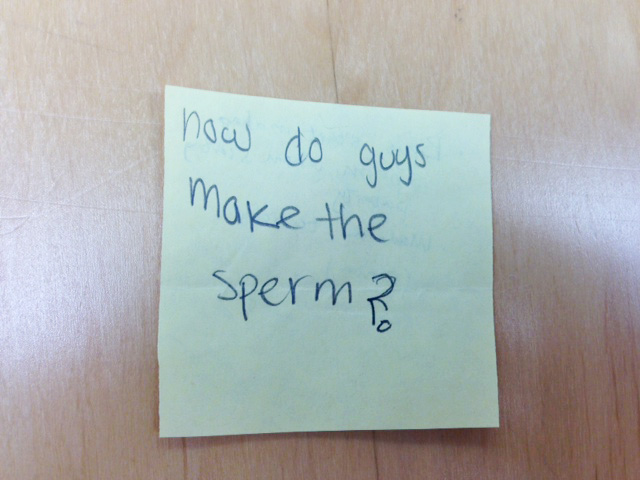 how do guys
make the
sperm?